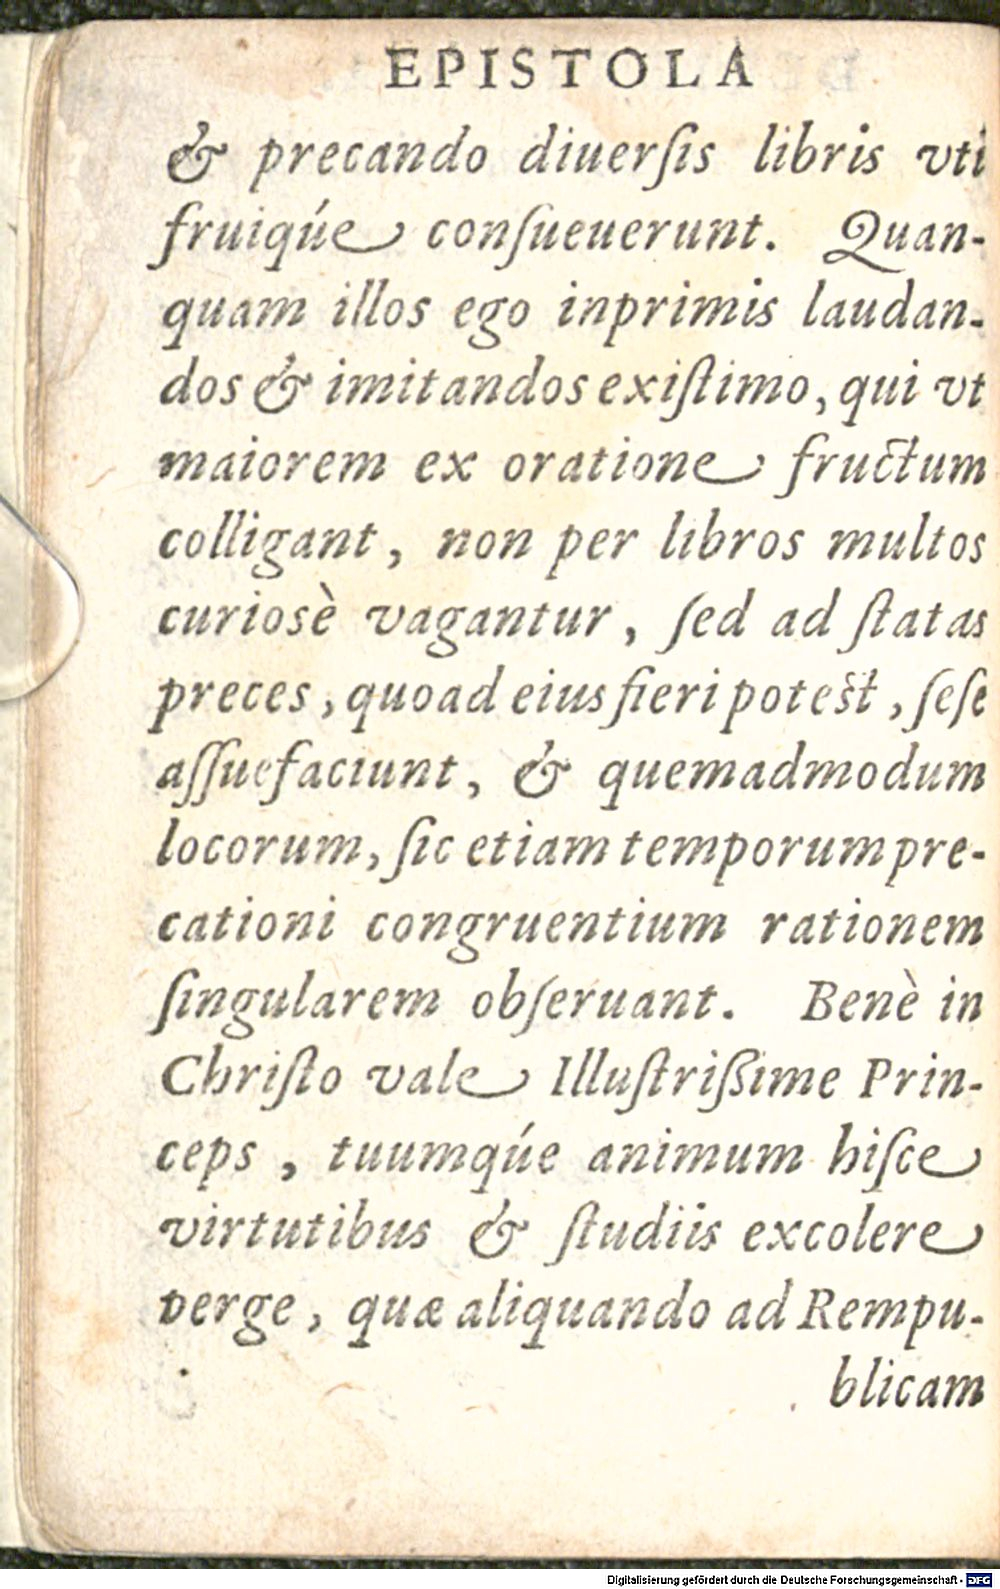 EPISTOLA
& precando diuerſis libris vti
fruiqúe conſueuerunt. Quan-
quam illos ego inprimis laudan-
dos & imitandos exiſtimo, qui vt
maiorem ex oratione fructum
colligant, non per libros multos
curiosè vagantur, ſed ad ſtatas
preces, quoad eius fieri potest, ſeſe
aſſuefaciunt, & quemadmodum
locorum, ſic etiam temporum pre-
cationi congruentium rationem
ſingularem obſeruant. Benè in
Chriſto vale Illuſtriſſime Prin-
ceps, tuumqúe animum hiſce
virtutibus & ſtudiis excolere
perge, quæ aliquando ad Rempu-
blicam
Digitalisierung gefördert durch die Deutsche Forschungsgemeinschaft - DFG